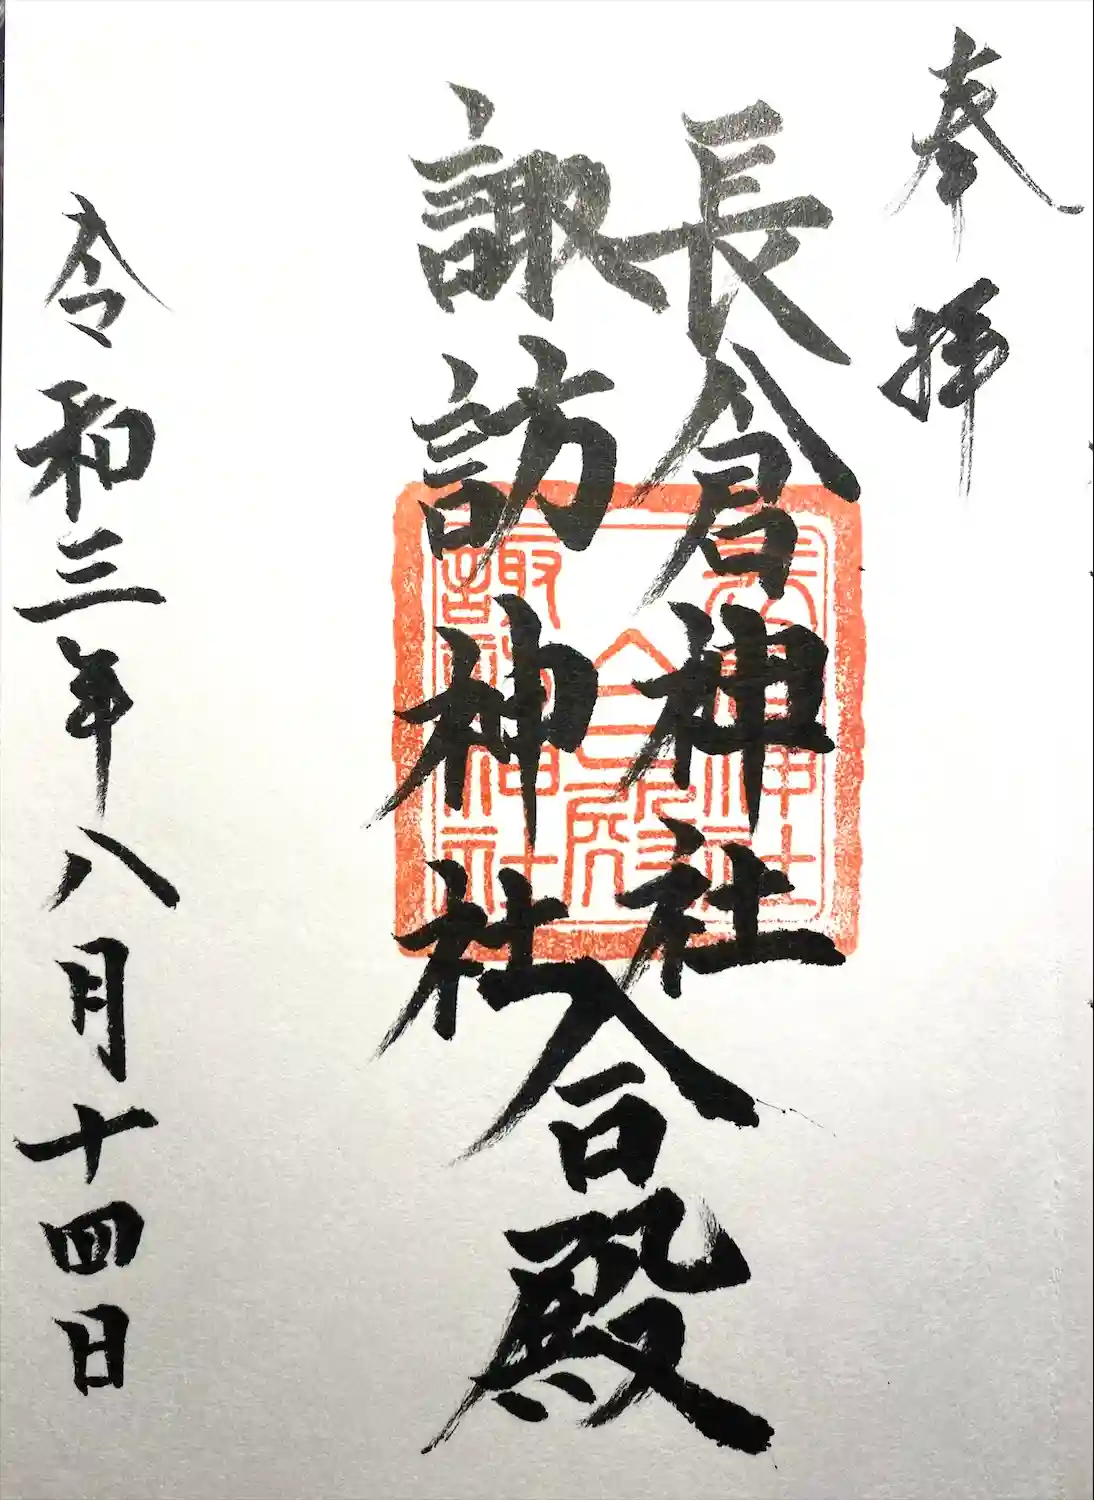 奉拝
長倉神社
諏訪神社
合殿
令和三年八月十四日
長倉神社
合殿
諏訪神社